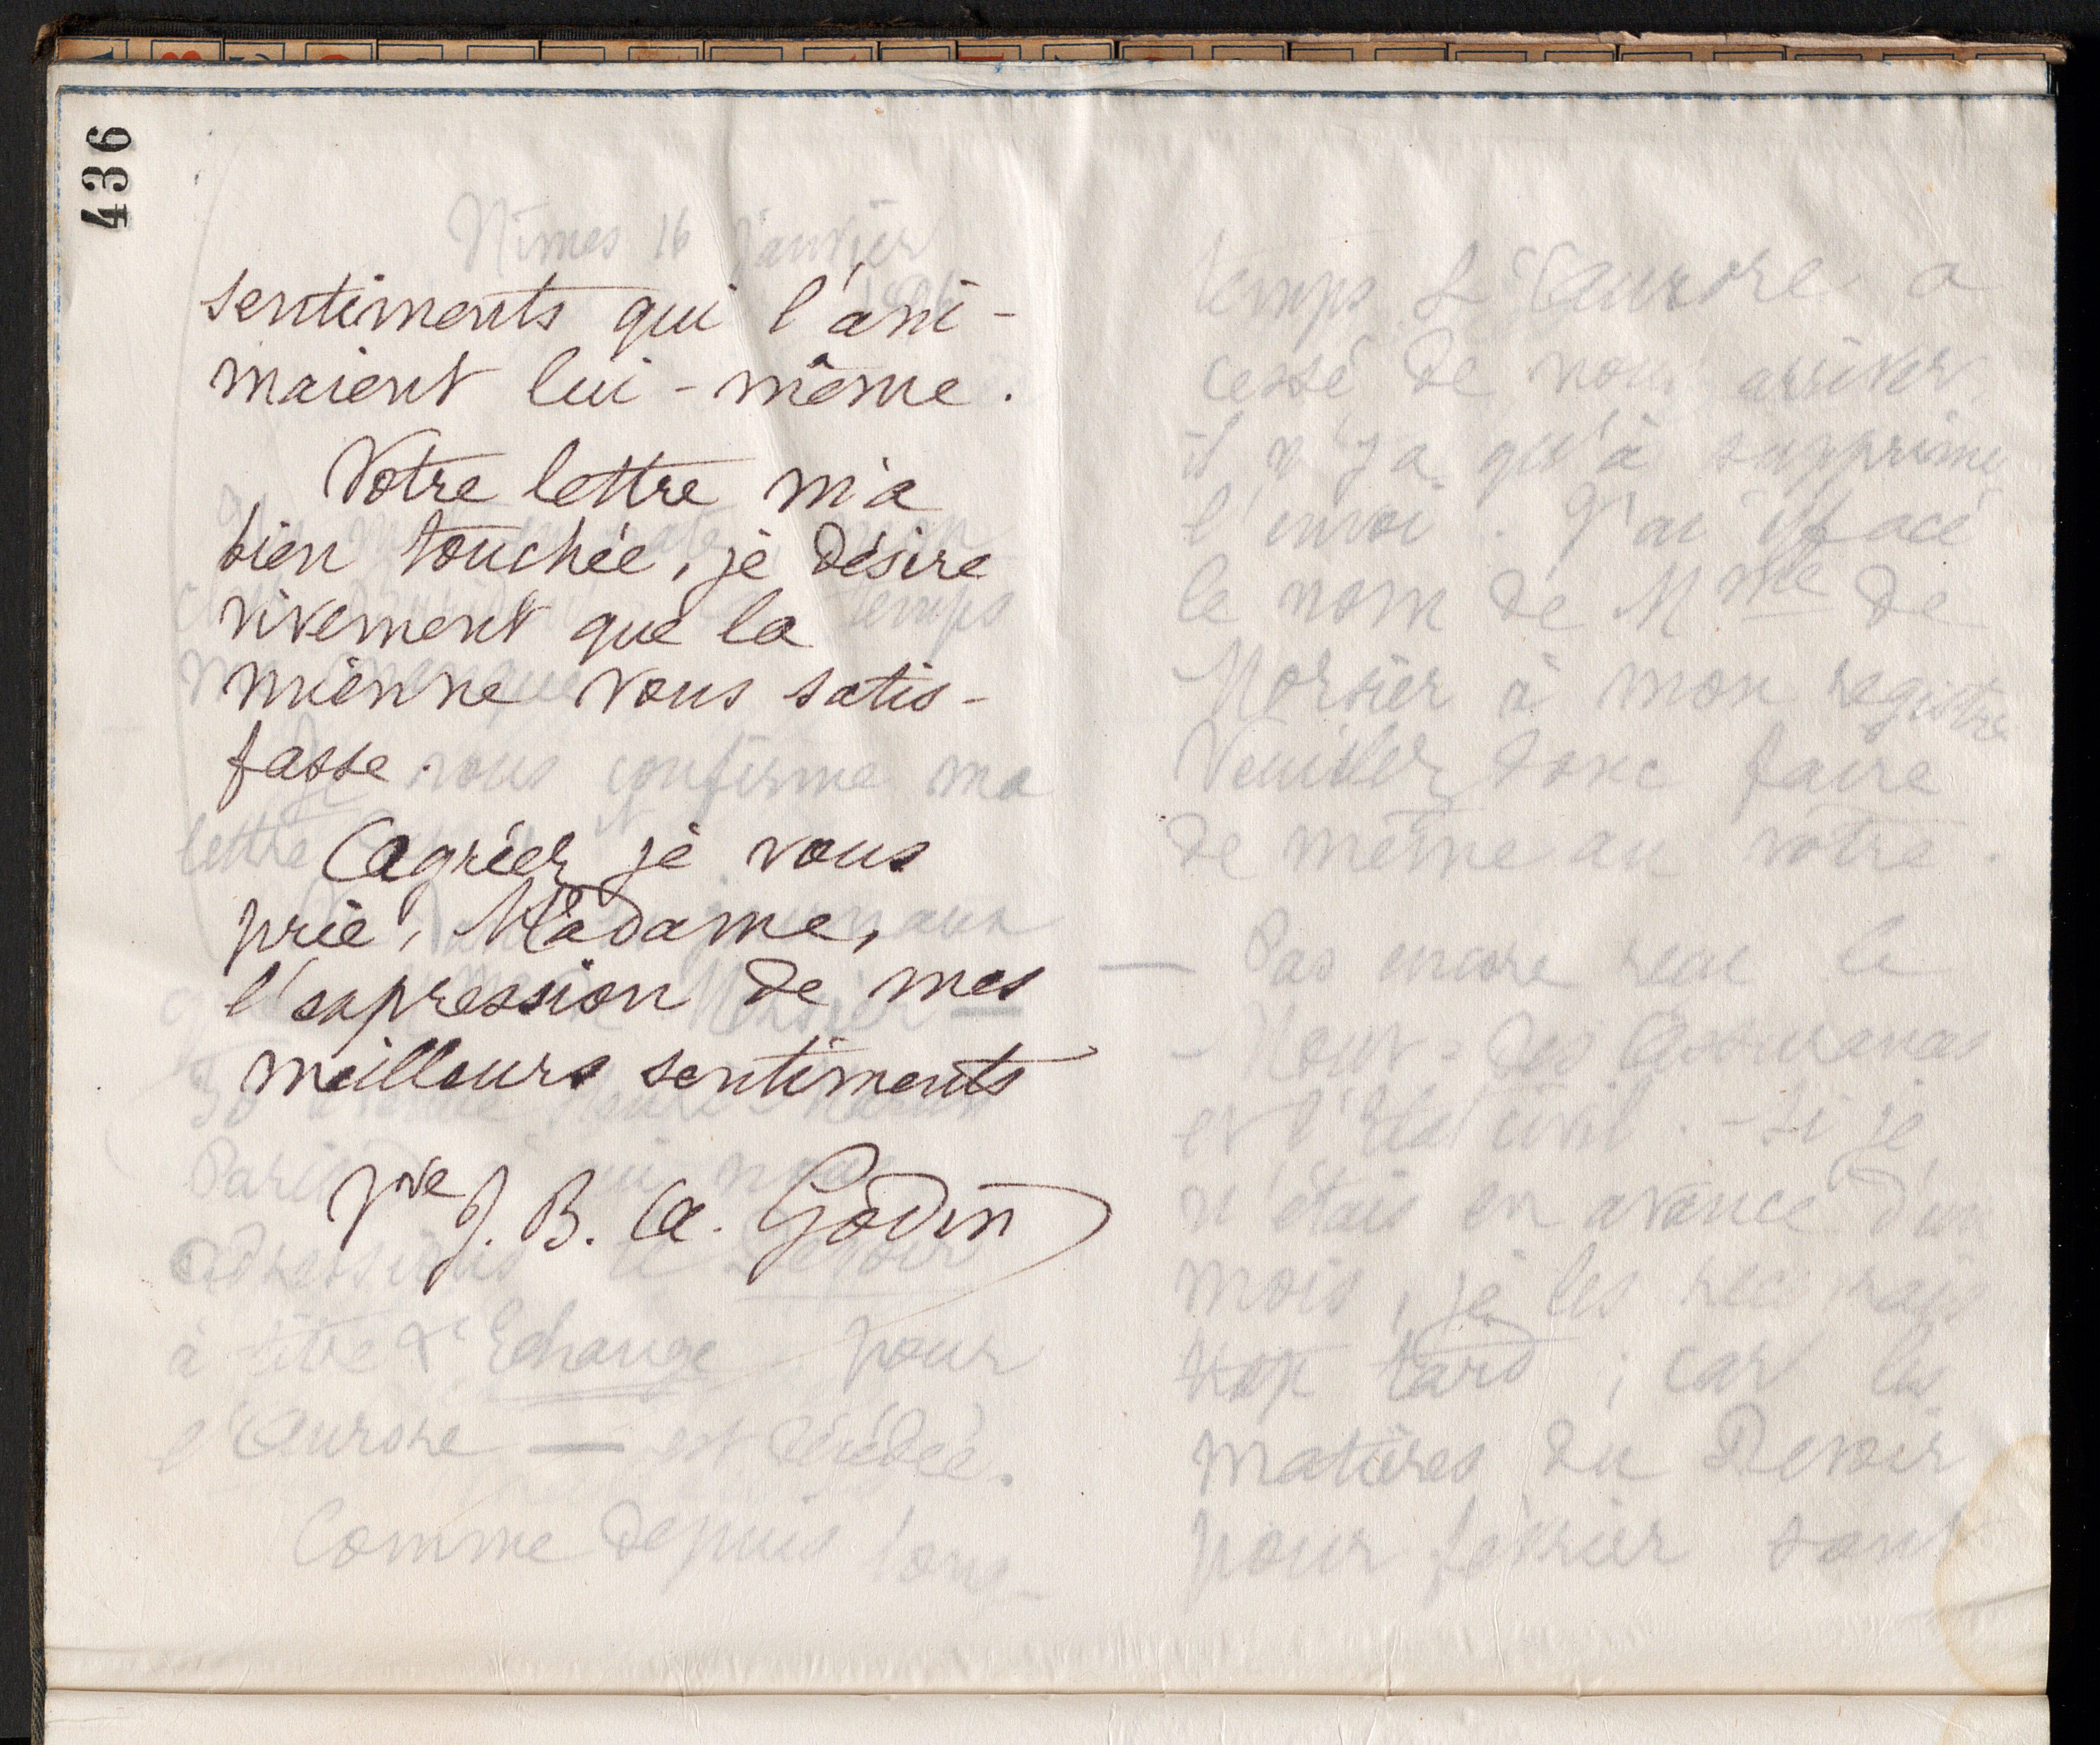 436
sentiments qui l'ani-
maient lui-même.
Votre lettre m'a
bien touchée, je désire
vivement que la
mienne vous satis-
fasse.
Agréez je vous
prie, Madame,
l'expression de mes
meilleurs sentiments
Vve J. B. A. Godin
Nimes 16 Janvier
temps
vous confirme ma
lettre
adressions le Devoir
à titre d'Echange pour
l'Aurore — est décédée.
Comme depuis long-
temps L'Aurore a
cessé de nous arriver,
il n'y a qu'à supprimer
l'envoi. J'ai effacé
le nom de Mme de
Morsier à mon registre
Veuillez donc faire
de même au votre.
— Pas encore reçu le
des Assurances
et l'Etat civil. - Si je
n'étais en avance d'un
mois, je les recevrais
trop tard ; car les
matières du Devoir
pour février sont